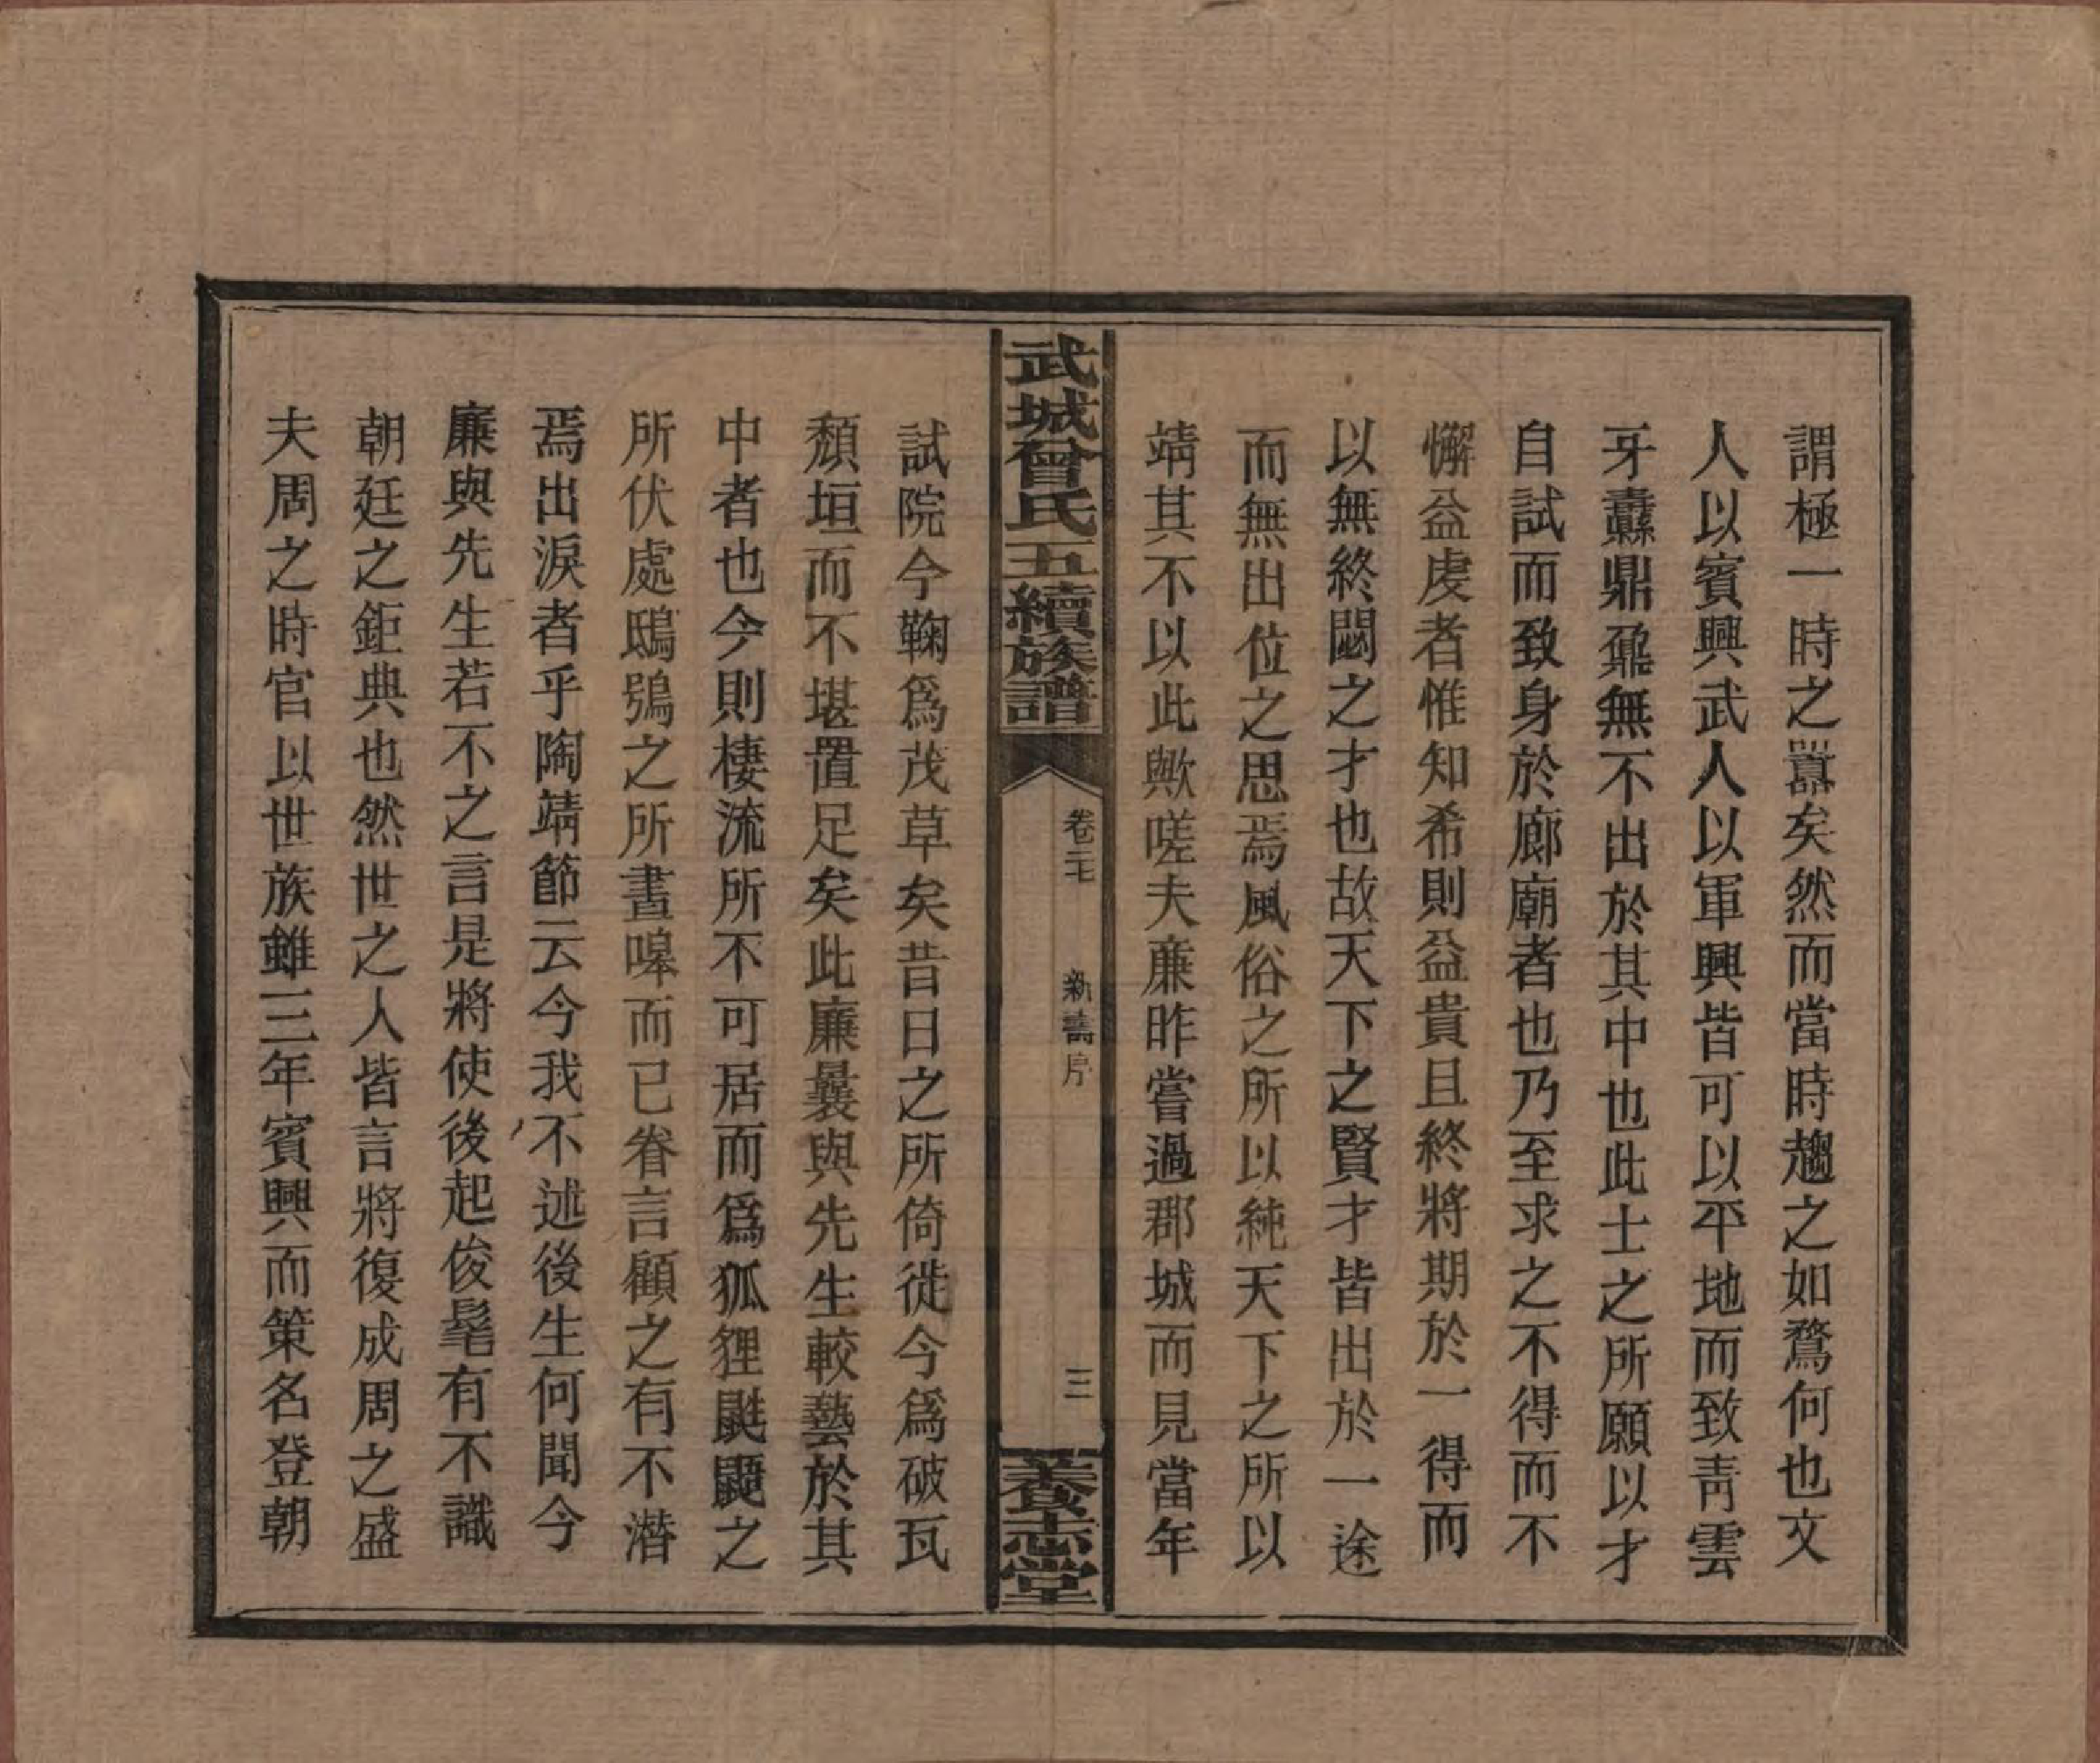 謂極一時之囂矣然而當時趨之如鶩何也文
人以賓興武人以軍興皆可以平地而致青雲
牙纛鼎鼐無不出於其中也此士之所願以才
自試而致身於廊廟者也乃至求之不得而不
懈益虔者惟知希則益貴且終將期於一得而
以無終閟之才也故天下之賢才皆出於一途
而無出位之思焉風俗之所以純天下之所以
靖其不以此歟嗟夫廉昨嘗過郡城而見當年
武城曾氏五續族譜
卷二七
新壽序
三
養志堂
試院今鞠爲茂草矣昔日之所倚徙今爲破瓦
頹垣而不堪置足矣此廉曩與先生較藝於其
中者也今則棲流所不可居而爲狐狸鼪鼯之
所伏處鴟鴞之所晝嘷而已眷言顧之有不潸
焉出淚者乎陶靖節云今我不述後生何聞今
廉與先生若不之言是將使後起俊髦有不識
朝廷之鉅典也然世之人皆言將復成周之盛
夫周之時官以世族雖三年賓興而策名登朝